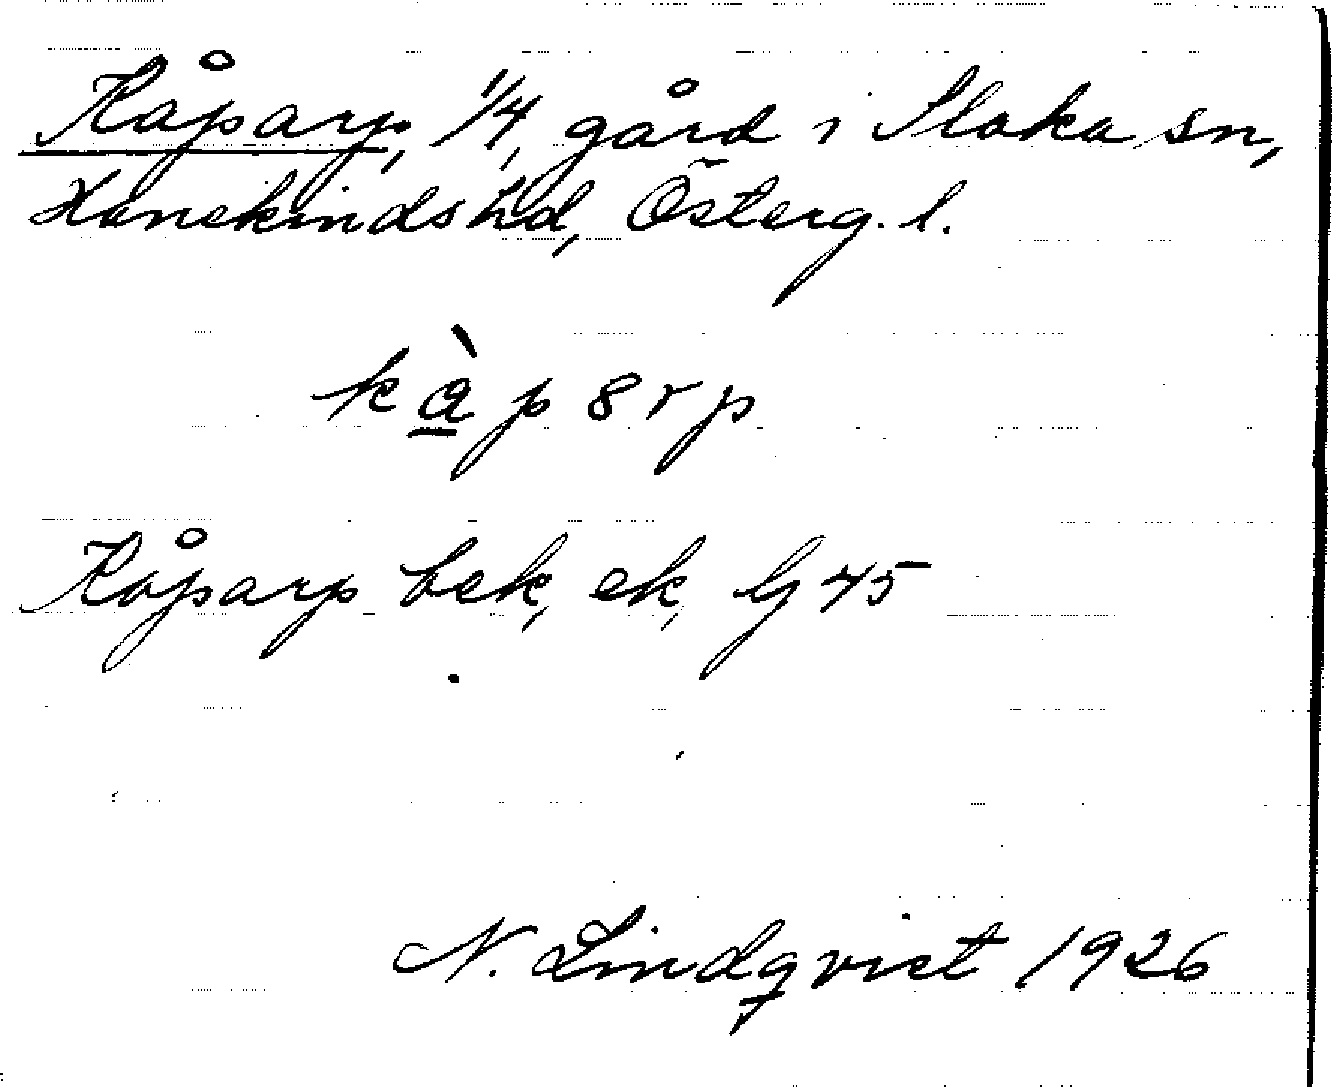 Kåparp, 1/4, gård i Slaka sn,
Hanekinds hd, Österg. l.
kàp8rp
Kåparp bek, ek, lj 45
N. Lindqvist 1926